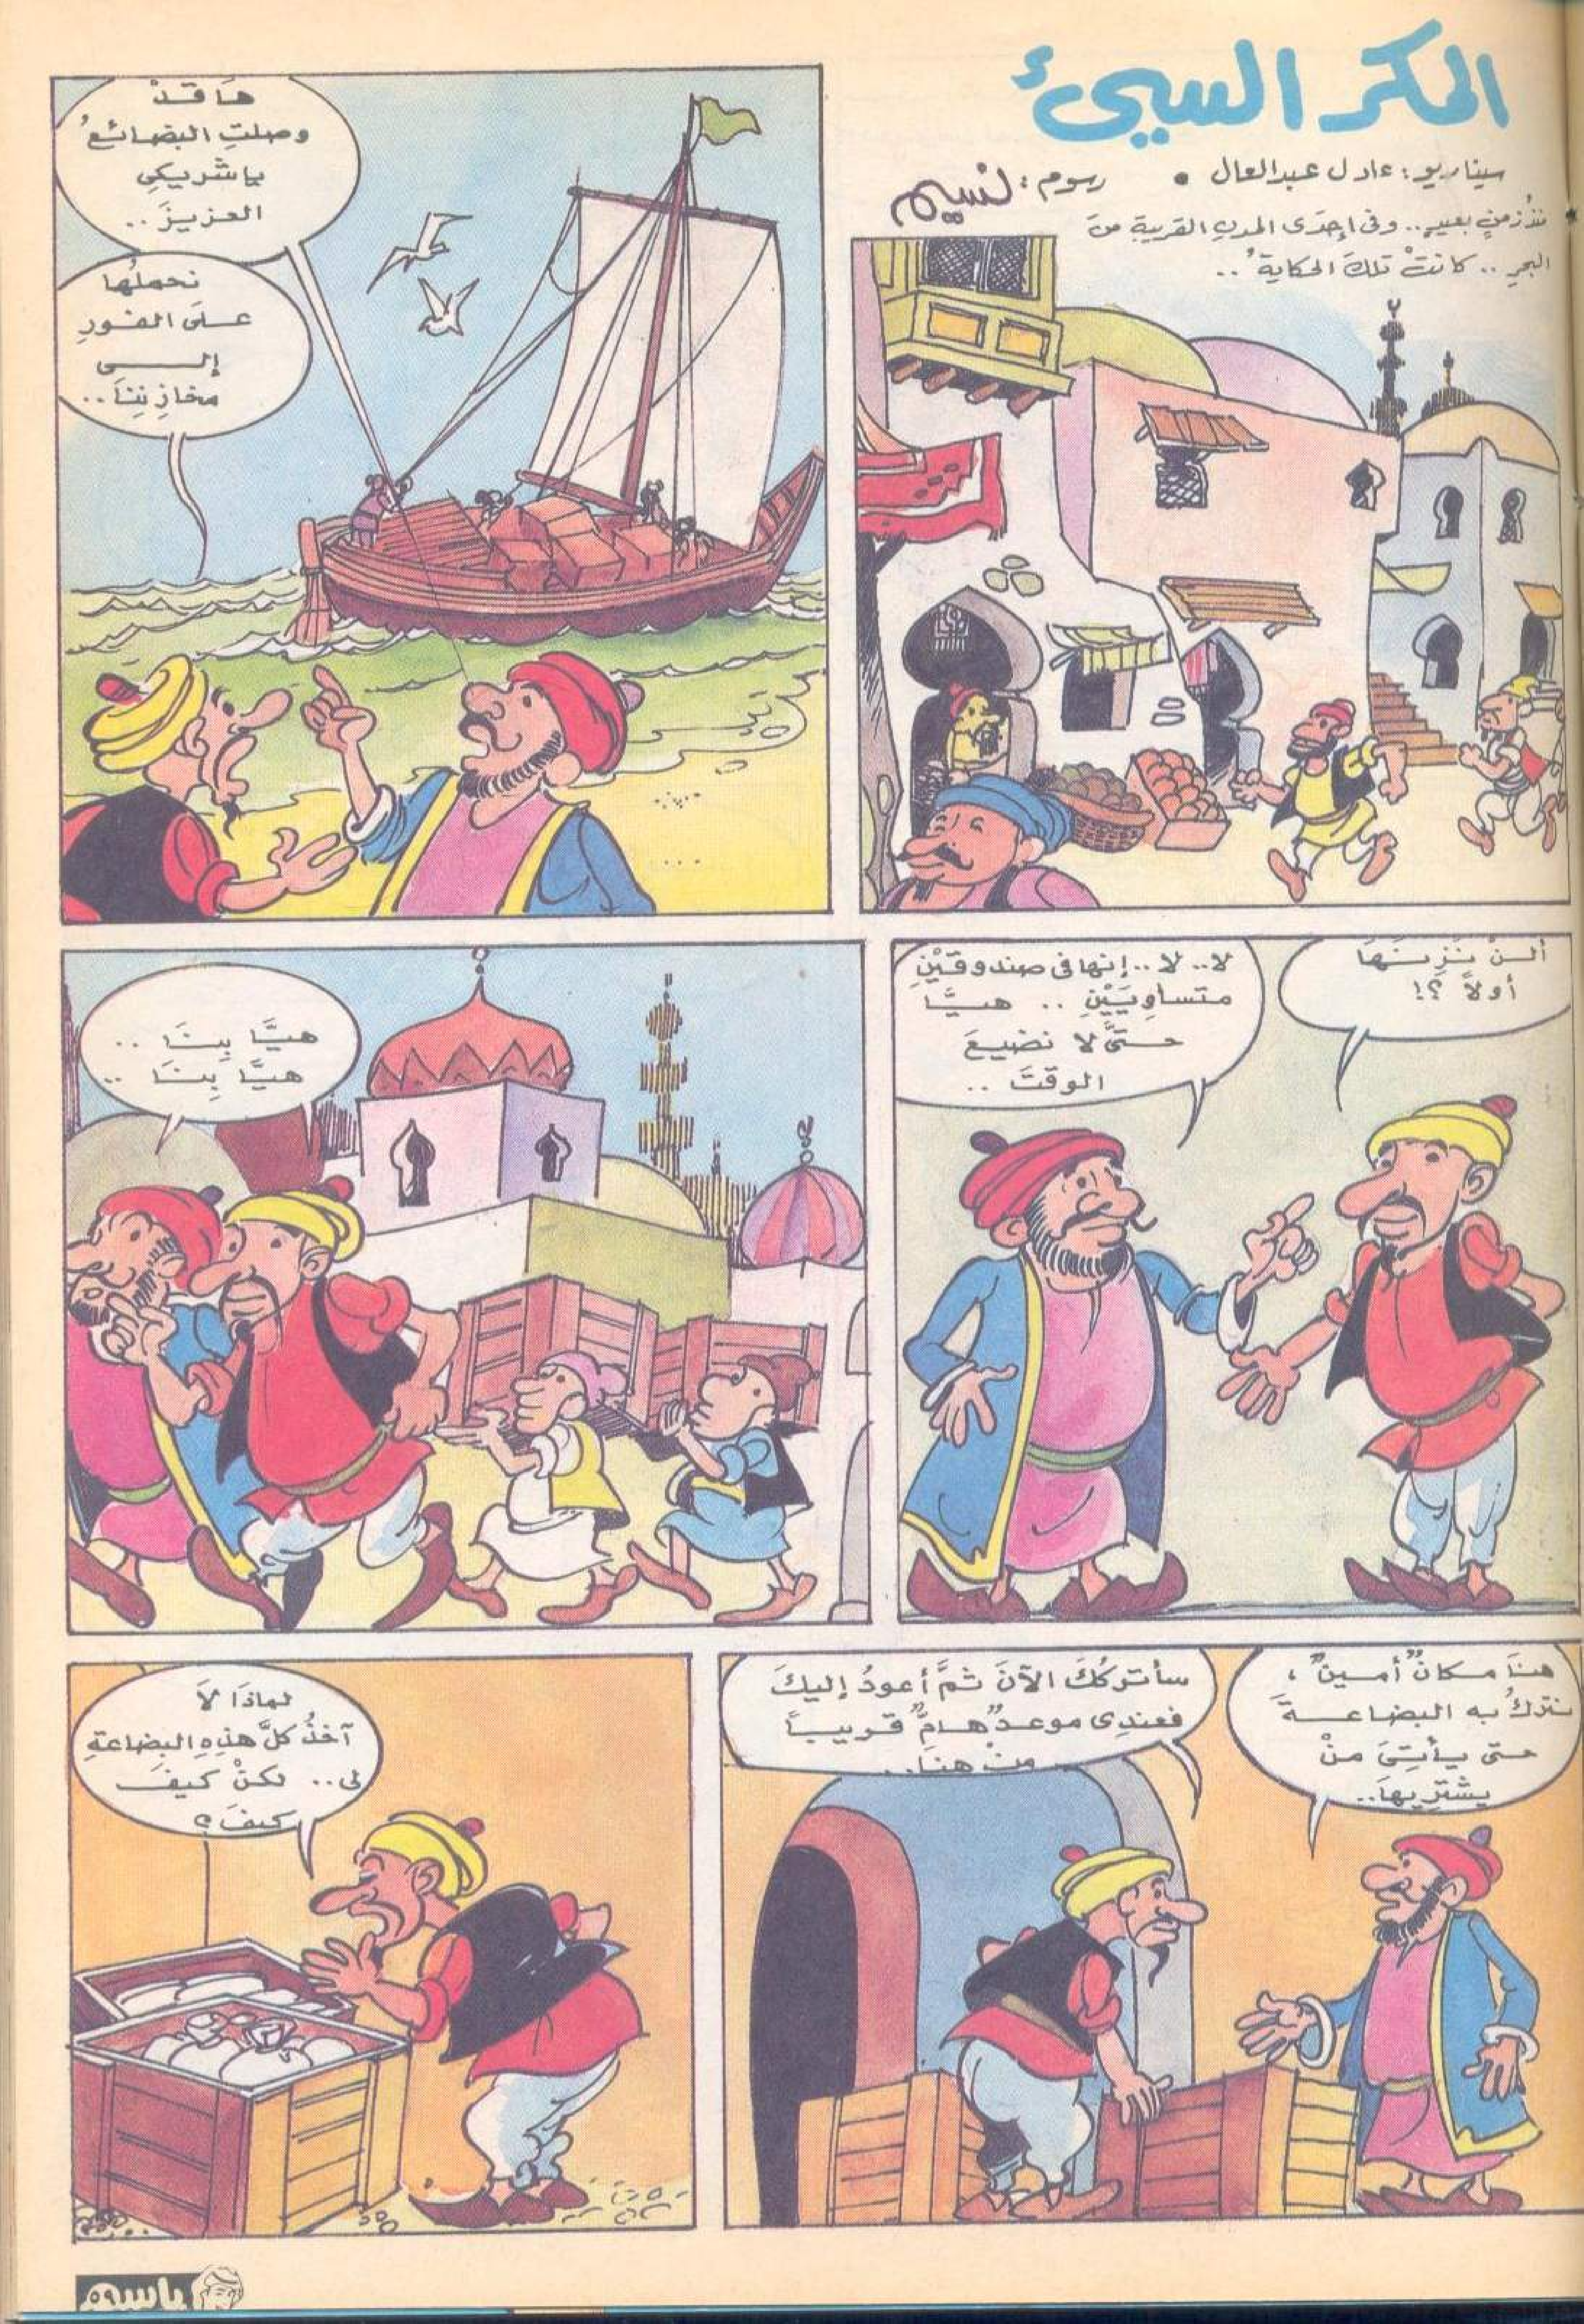 المكر السيئ
سيناريو: عادل عبدالعال • رسوم: نسيم
منذُ زمنٍ بعيدٍ.. وفى إحدَى المدنِ القريبةِ منَ
البحرِ .. كانتْ تلكَ الحكايةُ ..
هَا قَدْ
وصلتِ البضائعُ
ياشريكِى
العزيزَ ..
نحملُها
علَى الفورِ
إلى
مخازِنِنَا ..
ألنْ نَزِنَهَا
أولاً ؟!
لا.. لا.. إنها فى صندوقَيْنِ
متساوِيَيْنِ .. هيَّا
حتىَّ لا نضيعَ
الوقتَ ..
هيَّا بِنَا ..
هيَّا بِنَا ..
هنَا مكانٌ أمينٌ ،
نتركُ به البضاعةَ
حتى يأتِىَ منْ
يشترِيهَا..
سأتركُكَ الآنَ ثمَّ أعودُ إليكَ
فعندِى موعدٌ هامٌّ قريباً
منْ هنَا..
لماذَا لاَ
آخذُ كلَّ هذِهِ البضاعةِ
لى.. لكنْ كيفَ
كيفَ ؟
باسم
٥٩